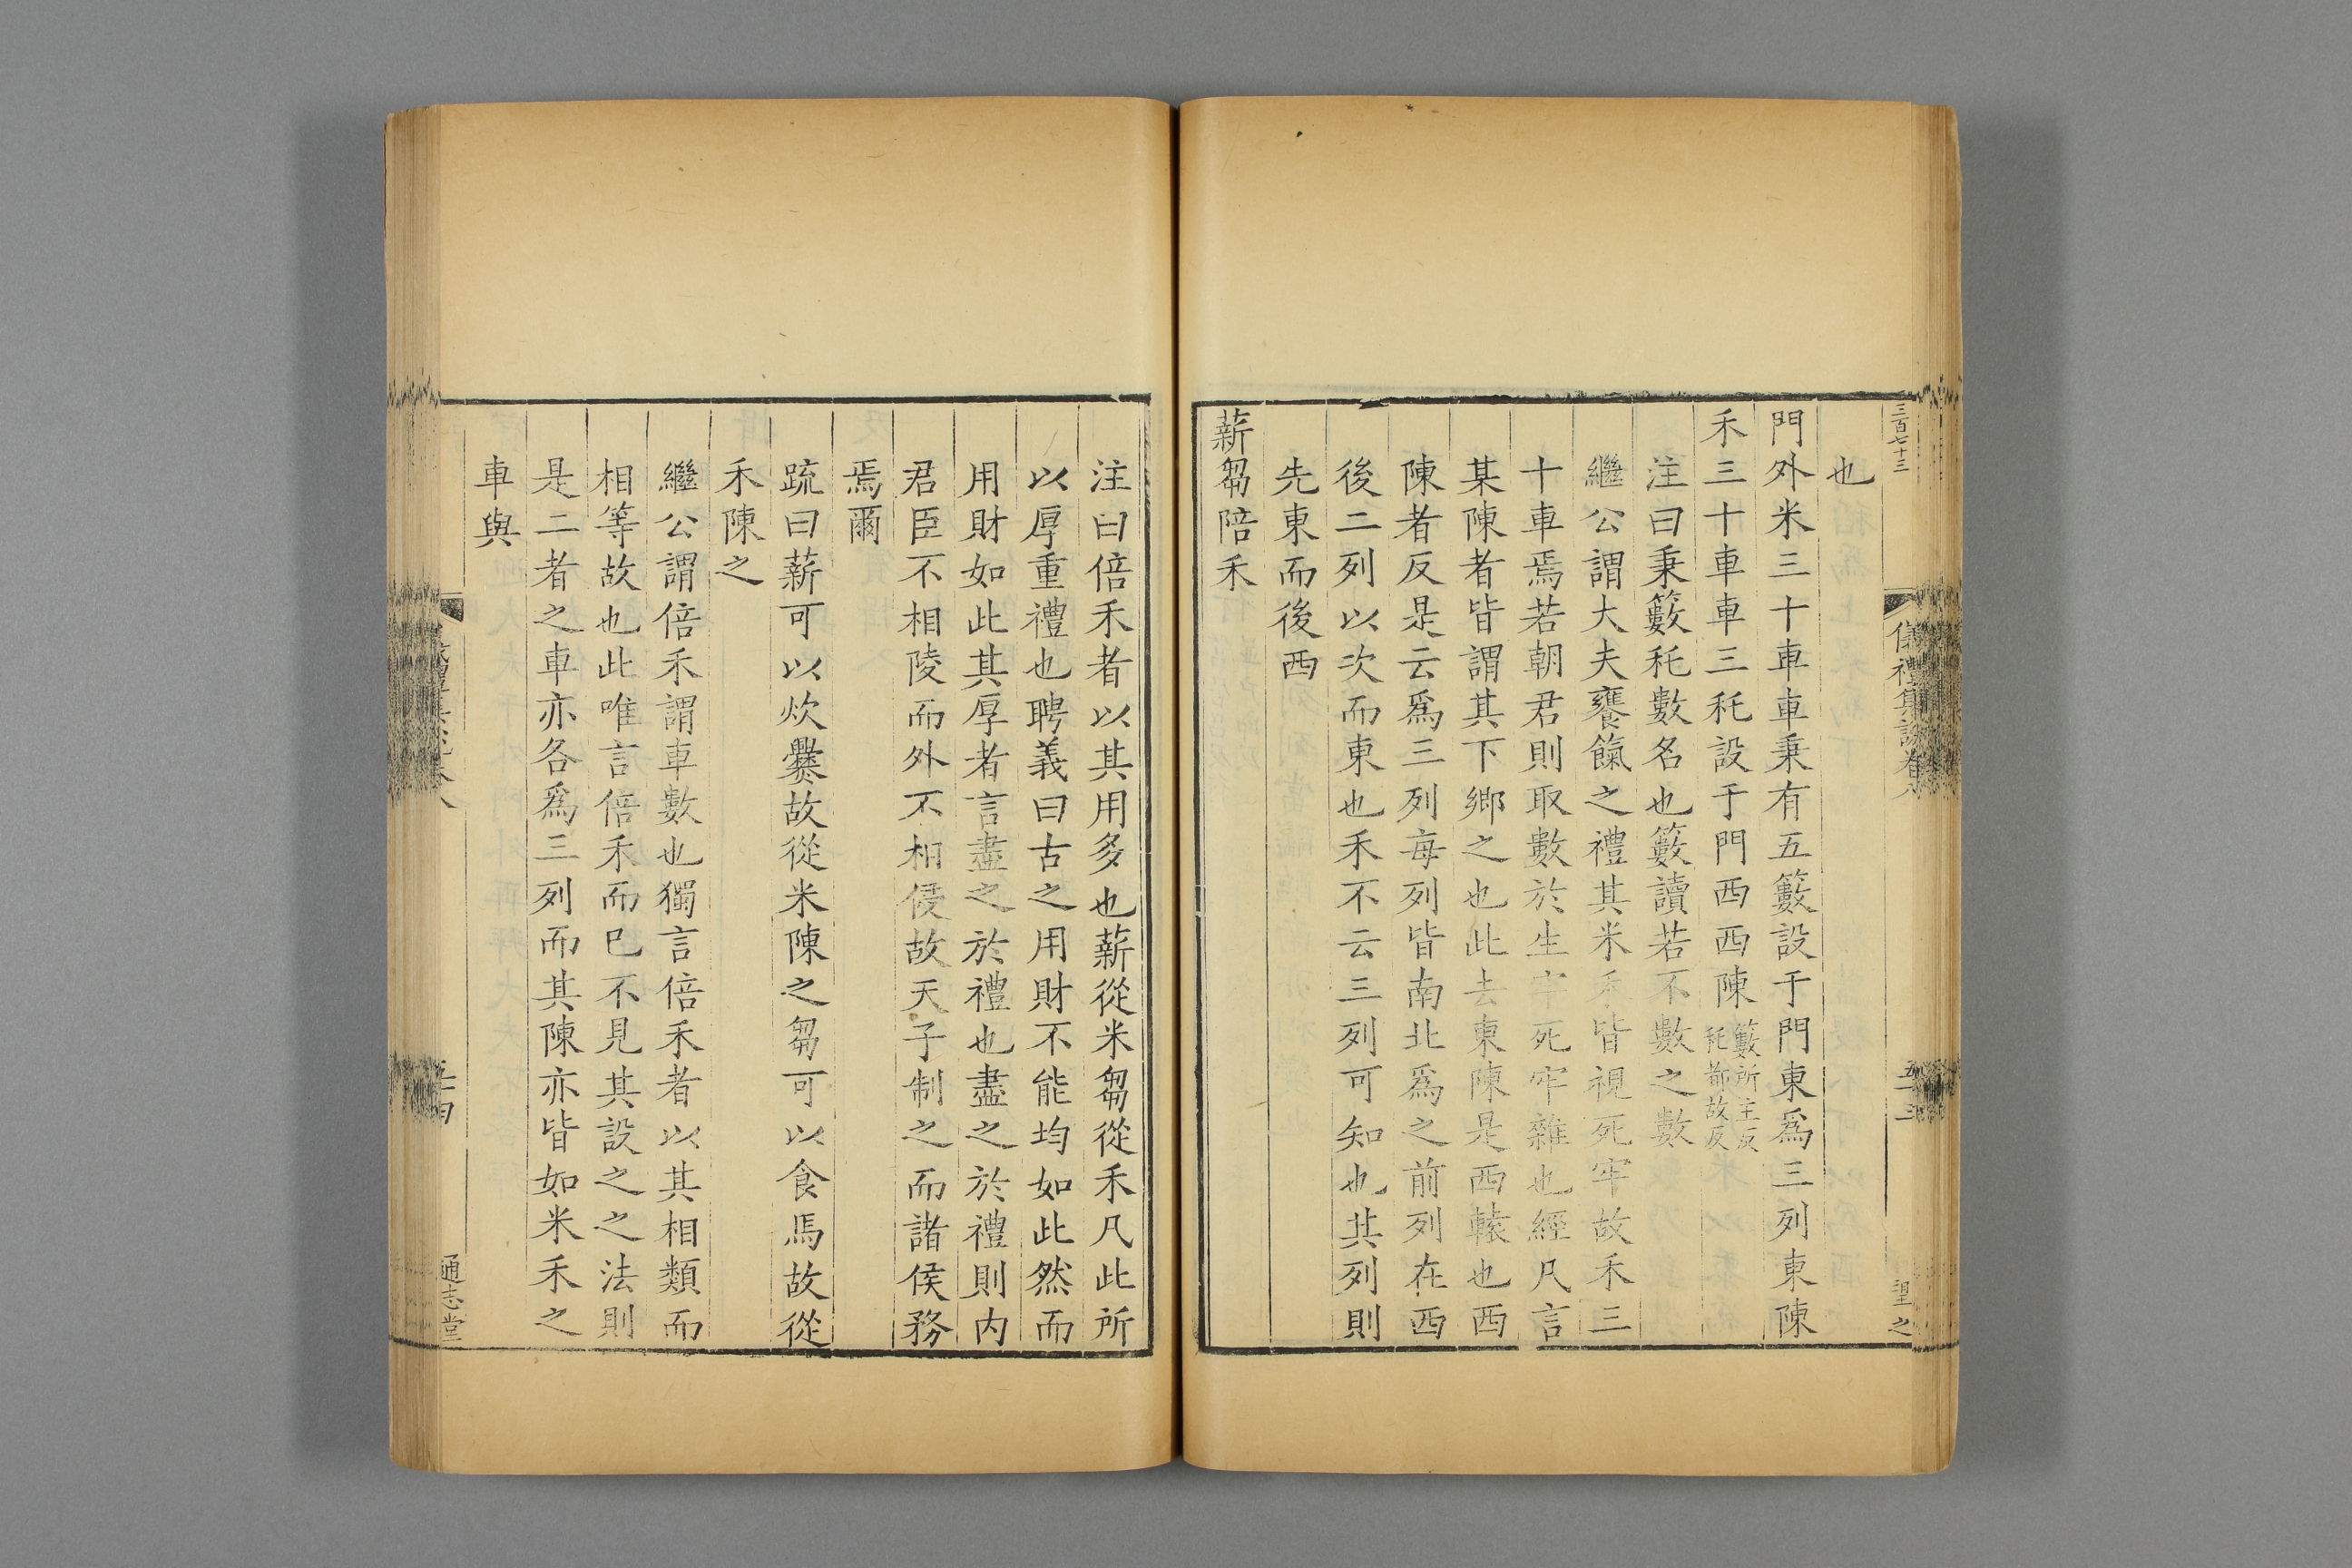 三百七十三
儀禮集說卷八
也
門外米三十車車秉有五籔設于門東爲三列東陳
禾三十車車三秅設于門西西陳籔所主反
秅都故反
注曰秉籔秅數名也籔讀若不數之數
繼公謂大夫饔餼之禮其米禾皆視死牢故禾三
十車焉若朝君則取數於生牢死牢雜也經凡言
某陳者皆謂其下鄉之也此去東陳是西轅也西
陳者反是云爲三列每列皆南北爲之前列在西
後二列以次而東也禾不云三列可知也其列則
先東而後西
薪芻陪禾
注曰倍禾者以其用多也薪從米芻從禾凡此所
以厚重禮也聘義曰古之用財不能均如此然而
用財如此其厚者言盡之於禮也盡之於禮則内
君臣不相陵而外不相侵故天子制之而諸侯務
焉爾
疏曰薪可以炊爨故從米陳之芻可以食馬故從
禾陳之
繼公謂倍禾謂車數也獨言倍禾者以其相類而
相等故也此唯言倍禾而巳不見其設之之法則
是二者之車亦各爲三列而其陳亦皆如米禾之
車與
通志堂